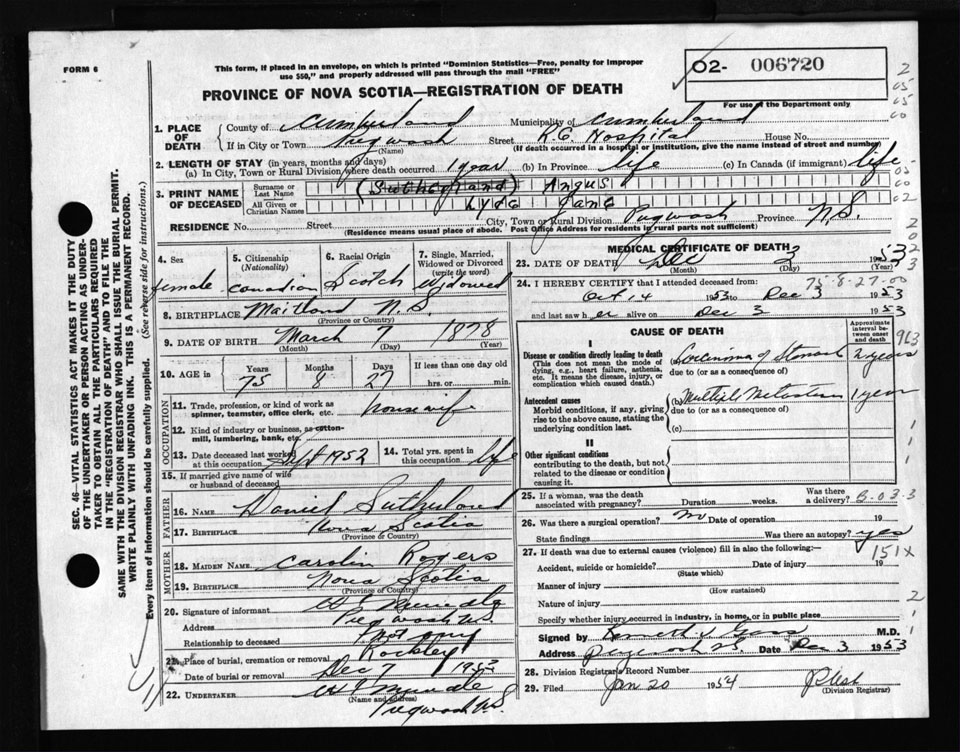 FORM 6
This form, if placed in an envelope, on which is printed "Dominion Statistics—Free, penalty for improper
use $50," and properly addressed will pass through the mail "FREE"
O2- 006720
For use of the Department only
PROVINCE OF NOVA SCOTIA—REGISTRATION OF DEATH
1. PLACE OF DEATH
County of Cumberland Municipality of Cumberland
If in City or Town Pugwash Street R.C. Hospital House No.
(Name) (If death occurred in a hospital or institution, give the name instead of street and number)
2. LENGTH OF STAY (in years, months and days)
(a) In City, Town or Rural Division where death occurred 1 year (b) In Province life (c) In Canada (if immigrant) life
3. PRINT NAME OF DECEASED
Surname or Last Name (Sutherland) Angus
All Given or Christian Names Jane
RESIDENCE No. Street City, Town or Rural Division Pugwash Province N.S.
(Residence means usual place of abode. Post Office Address for residents in rural parts not sufficient)
4. Sex female
5. Citizenship (Nationality) Canadian
6. Racial Origin Scotch
7. Single, Married, Widowed or Divorced (write the word) Widowed
8. BIRTHPLACE Maitland N.S.
(Province or Country)
9. DATE OF BIRTH March 7 1878
(Month) (Day) (Year)
10. AGE in Years 75 Months 8 Days 27 If less than one day old
hrs. or min.
OCCUPATION
11. Trade, profession, or kind of work as
spinner, teamster, office clerk, etc. housewife
12. Kind of industry or business, as cotton-
mill, lumbering, bank, etc.
13. Date deceased last worked at this occupation Sept 1952
14. Total yrs. spent in this occupation life
15. If married give name of wife
or husband of deceased
FATHER
16. NAME Daniel Sutherland
17. BIRTHPLACE Nova Scotia
(Province or Country)
MOTHER
18. MAIDEN NAME Carolin Rogers
19. BIRTHPLACE Nova Scotia
(Province or Country)
20. Signature of informant
Address Pugwash N.S.
Relationship to deceased
21. Place of burial, cremation or removal Rockley
Date of burial or removal Dec 7 1953
22. UNDERTAKER
(Name and address)
Pugwash N.S.
MEDICAL CERTIFICATE OF DEATH
23. DATE OF DEATH Dec 3 1953
(Month) (Day) (Year)
24. I HEREBY CERTIFY that I attended deceased from: 75-8-27-00
Oct 14 1953 to Dec 3 1953
and last saw her alive on Dec 3 1953
CAUSE OF DEATH
Approximate interval between onset and death
963
I
Disease or condition directly leading to death
(This does not mean the mode of
dying, e.g., heart failure, asthenia,
etc. It means the disease, injury, or
complication which caused death.)
Carcinoma of Stomach 2 years
due to (or as a consequence of)
Antecedent causes
Morbid conditions, if any, giving
rise to the above cause, stating the
underlying condition last.
(b) Multiple Metastases 1 year
due to (or as a consequence of)
(c)
II
Other significant conditions
contributing to the death, but not
related to the disease or condition
causing it.
25. If a woman, was the death
associated with pregnancy? Duration weeks. Was there a delivery?
26. Was there a surgical operation? no Date of operation 19
State findings Was there an autopsy? yes
27. If death was due to external causes (violence) fill in also the following:— 151X
Accident, suicide or homicide? Date of injury 19
(State which)
Manner of injury
(How sustained)
Nature of injury
Specify whether injury occurred in industry, in home, or in public place
Signed by Kenneth M.D.
Address Pugwash NS Date Dec 3 1953
28. Division Registrar's Record Number
29. Filed Jan 20 1954
(Division Registrar)
SEC. 46—VITAL STATISTICS ACT MAKES IT THE DUTY
OF THE UNDERTAKER OR PERSON ACTING AS UNDER-
TAKER TO OBTAIN ALL THE PARTICULARS REQUIRED
IN THE "REGISTRATION OF DEATH" AND TO FILE THE
SAME WITH THE DIVISION REGISTRAR WHO SHALL ISSUE THE BURIAL PERMIT.
WRITE PLAINLY WITH UNFADING INK. THIS IS A PERMANENT RECORD.
Every item of information should be carefully supplied. (See reverse side for instructions.)